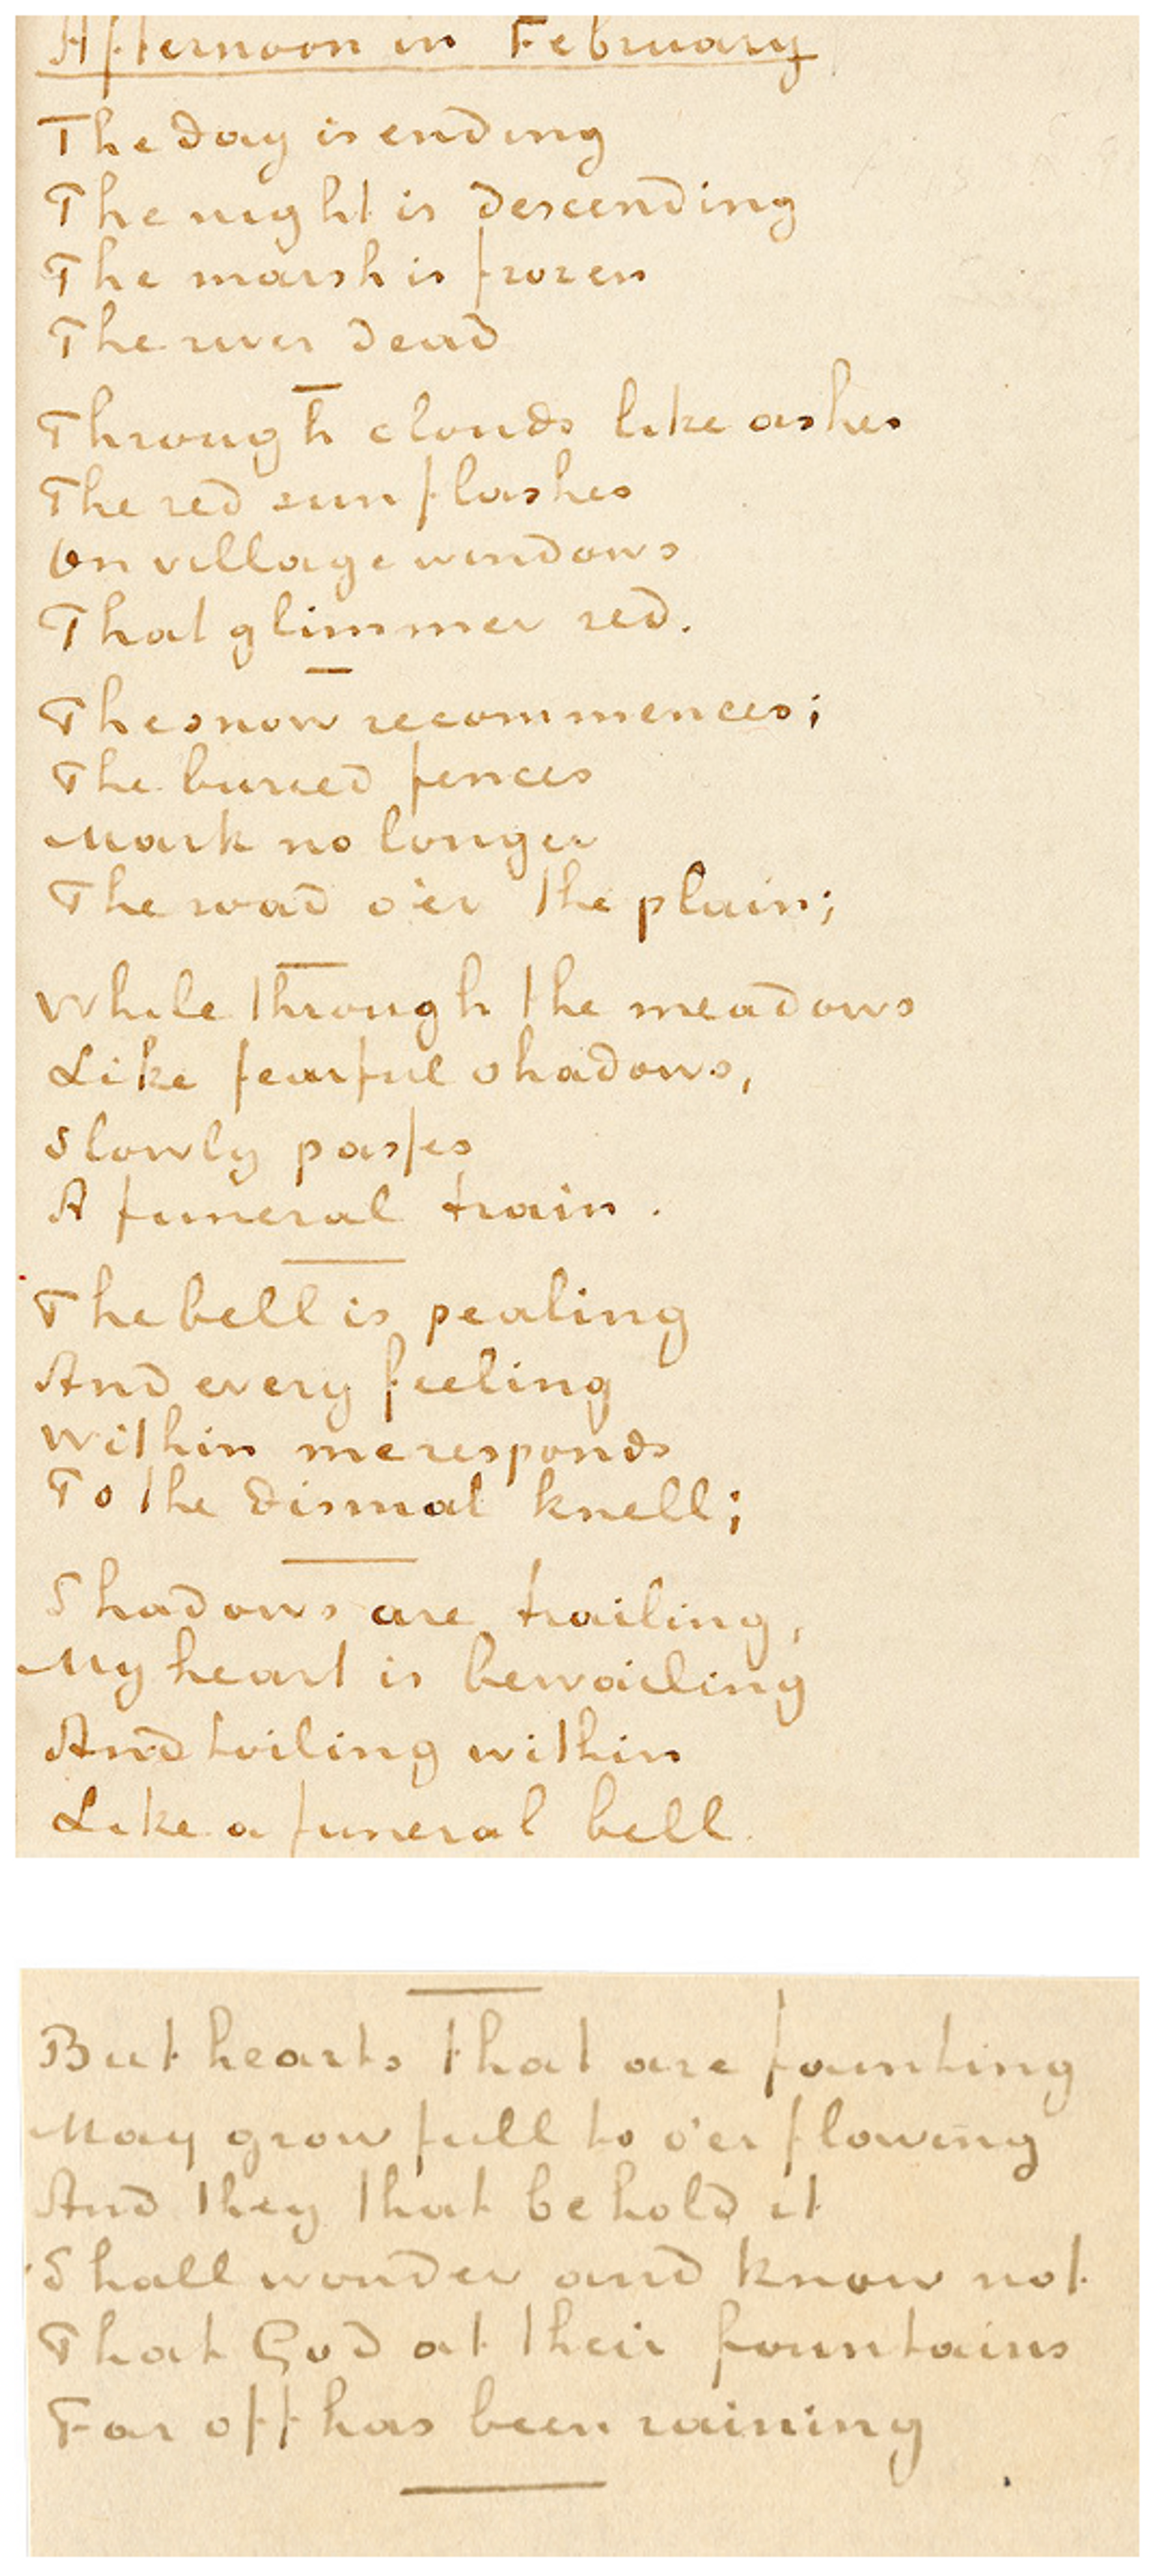 Afternoon in February
The day is ending
The night is descending
The marsh is frozen
The river dead
Through clouds like ashes
The red sun flashes
On village windows
That glimmer red.
The snow recommences;
The buried fences
Mark no longer
The road o'er the plain;
While through the meadows
Like fearful shadows,
Slowly passes
A funeral train.
The bell is pealing
And every feeling
Within me responds
To the dismal knell;
Shadows are trailing,
My heart is bewailing
And toiling within
Like a funeral bell.
But hearts that are fainting
May grow full to o'erflowing
And they that behold it
Shall wonder and know not
That God at their fountains
Far off has been raining